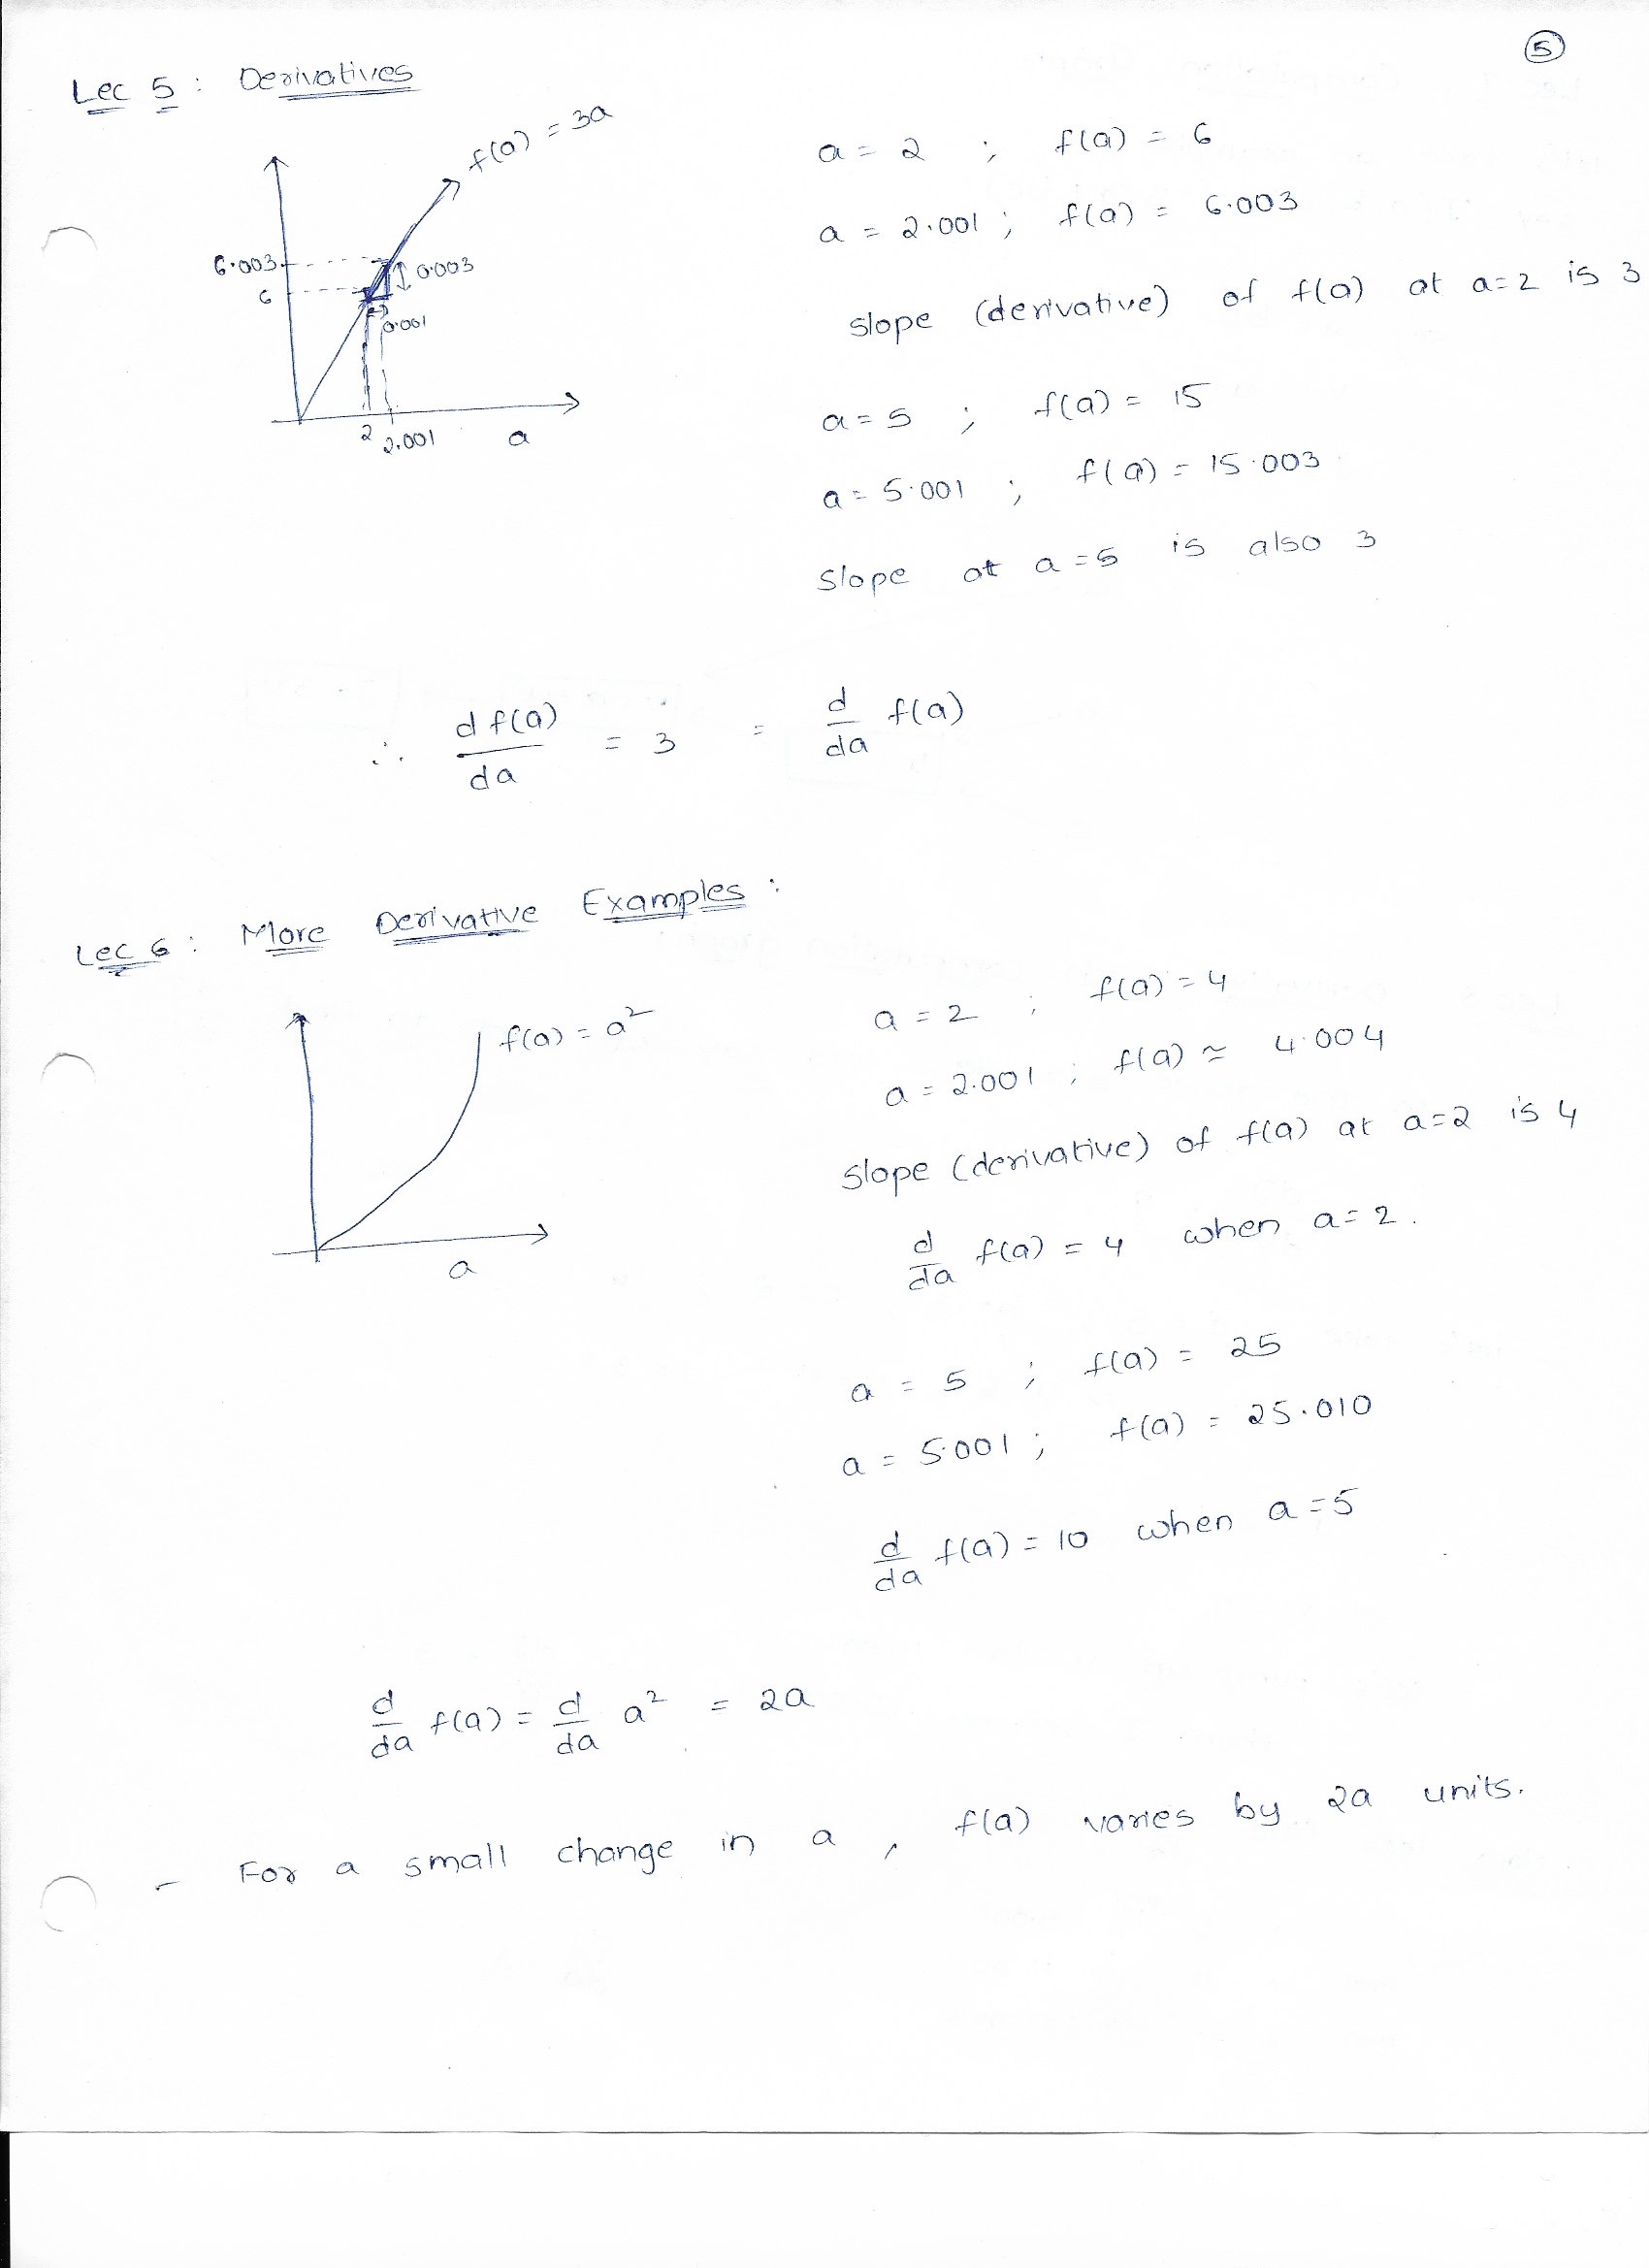 5
Lec 5 : Derivatives
f(a) = 3a
6.003
0.003
6
0.001
2 2.001 a
a = 2 ; f(a) = 6
a = 2.001 ; f(a) = 6.003
slope (derivative) of f(a) at a=2 is 3
a = 5 ; f(a) = 15
a = 5.001 ; f(a) = 15.003
Slope at a = 5 is also 3
∴ d f(a)/da = 3 = d/da f(a)
Lec 6 : More Derivative Examples :
f(a) = a²
a
a = 2 ; f(a) = 4
a = 2.001 ; f(a) ≈ 4.004
slope (derivative) of f(a) at a=2 is 4
d/da f(a) = 4 when a = 2.
a = 5 ; f(a) = 25
a = 5.001 ; f(a) = 25.010
d/da f(a) = 10 when a = 5
d/da f(a) = d/da a² = 2a
- For a small change in a , f(a) varies by 2a units.